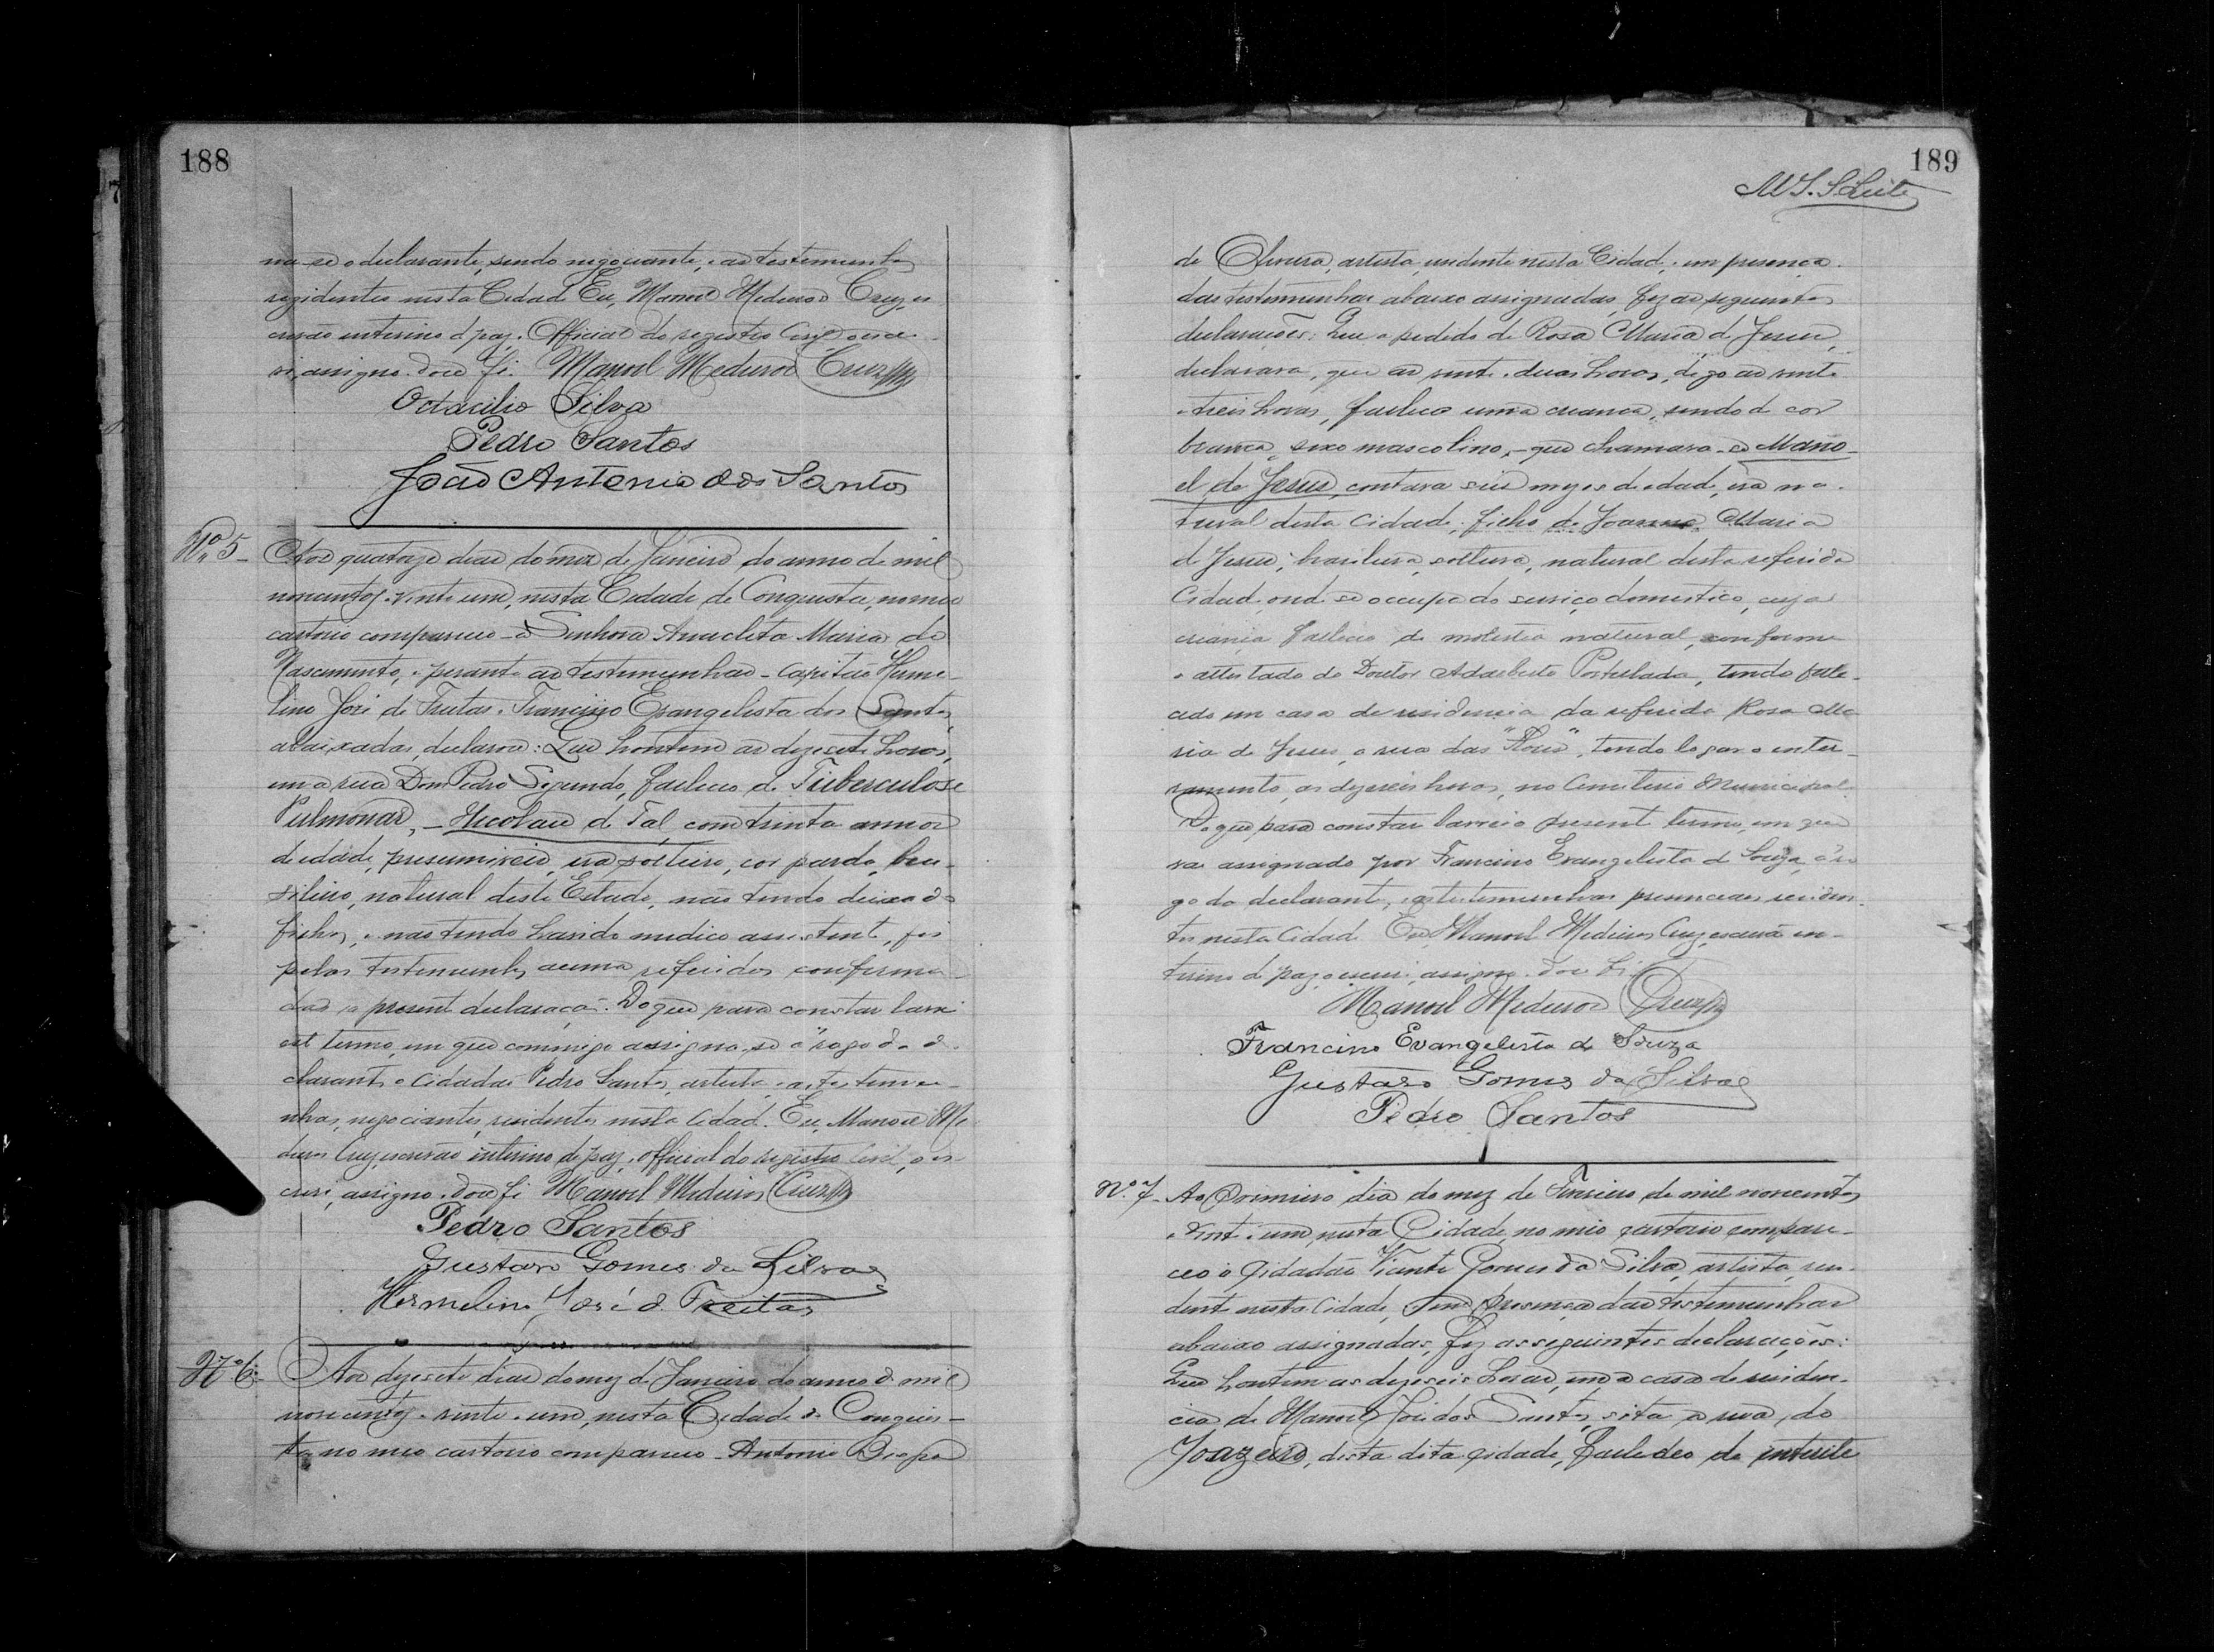 188
na-se o declarante, sendo negociante, e as testemunhas
rezidentes nesta Cidade Eu, Manoel Medeiros Cruz, es
crivão interino d paz, Official do registro Civil o escre
vi, assigno. dou fé. Manoel Medeiros Cruz
Octacilio Silva
Pedro Santos
João Antonio dos Santos
Nº 5- Aos quatorze dias do mez de Janeiro do anno de mil
novecentos e vinte um, nesta Cidade de Conquista, no meu
cartorio compareceu - a Senhora Anacleta Maria do
Nascimento, e perante as testemunhas - Capitão Herme-
lino José de Freitas e Francisco Evangelista dos Santos,
abaixadas, declarou: Que hontem as dezesete horas,
em a rua Dom Pedro Segundo, falleceu de Tuberculose
Pulmonar, - Nicolau de Tal, com trinta annos
de edade, presumiveis, era solteiro, cor parda, bra-
sileiro, natural deste Estado, não tendo deixado
filhos, e nao tendo havido medico assistente, foi
pelas testemunhas acima referidos confirma-
das a presente declaração. Do que para constar lavrei
este termo, em que commigo assigna-se a rogo da de
clarante o Cidadão Pedro Santos, artista, e as testemu-
nhas, negociantes, residentes nesta Cidade. Eu, Manoel Me
deiros Cruz, escrivão interino de paz, official do registro Civil, o es-
crevi, assigno. dou fé Manoel Medeiros Cruz
Pedro Santos
Gustavo Gomes da Silva
Hermelino José d Freitas
Nº 6: Aos dezesete dias do mez de Janeiro do anno de mil
novecentos e vinte e um, nesta Cidade de Conquis-
ta, no meu cartorio compareceu - Antonio
189
M S. S Leite
de Oliveira, artista, residente nesta Cidade, e em presença
das testemunhas abaixo assignadas, fez as seguintes
declarações: Que a pedido de Rosa Maria de Jesus,
declarava, que as vinte e duas horas, digo as vinte
e treis horas, falleceu uma creança, sendo de cor
branca, sexo masculino, - que chamava-se Mano-
el de Jesus, contava seis mezes de edade, era na-
tural desta Cidade, filho de Joanna Maria
de Jesus, brasileira, solteira, natural desta referida
Cidade, onde se occupa do serviço domestico, cuja
creança falleceu de molestia natural, conforme
o attestado do Doutor Adalberto, tendo falle-
cido em casa de residencia da referida Rosa Ma
ria de Jesus, a rua das "Flores", tendo logar o enter-
ramento, as dezeseis horas, no Cemiterio Municipal.
Do que para constar lavrei o presente termo, em que
vai assignado por Francino Evangelista de Souza, á ro
go do declarante, e as testemunhas presenciaes residen-
tes nesta Cidade Eu, Manoel Medeiros Cruz, escrivão in-
terino de paz, o escrevi, assigno. dou fé.
Manoel Medeiros Cruz
Francino Evangelista de Souza
Gustavo Gomes da Silva
Pedro Santos
Nº. 7- Ao Primeiro dia do mez de Fevereiro de mil novecentos
e vinte e um, nesta Cidade, no meu cartorio compare-
ceo o Cidadão Vicente Gomes da Silva, artista, resi-
dente nesta Cidade, e em presença das testemunhas
abaixo assignadas, fez as seguintes declarações:
Que hontem as dezeseis horas, em a casa de residen-
cia de Manoel José dos Santos, sita a rua do
Joazeiro, desta dita cidade, falleceo de enterite